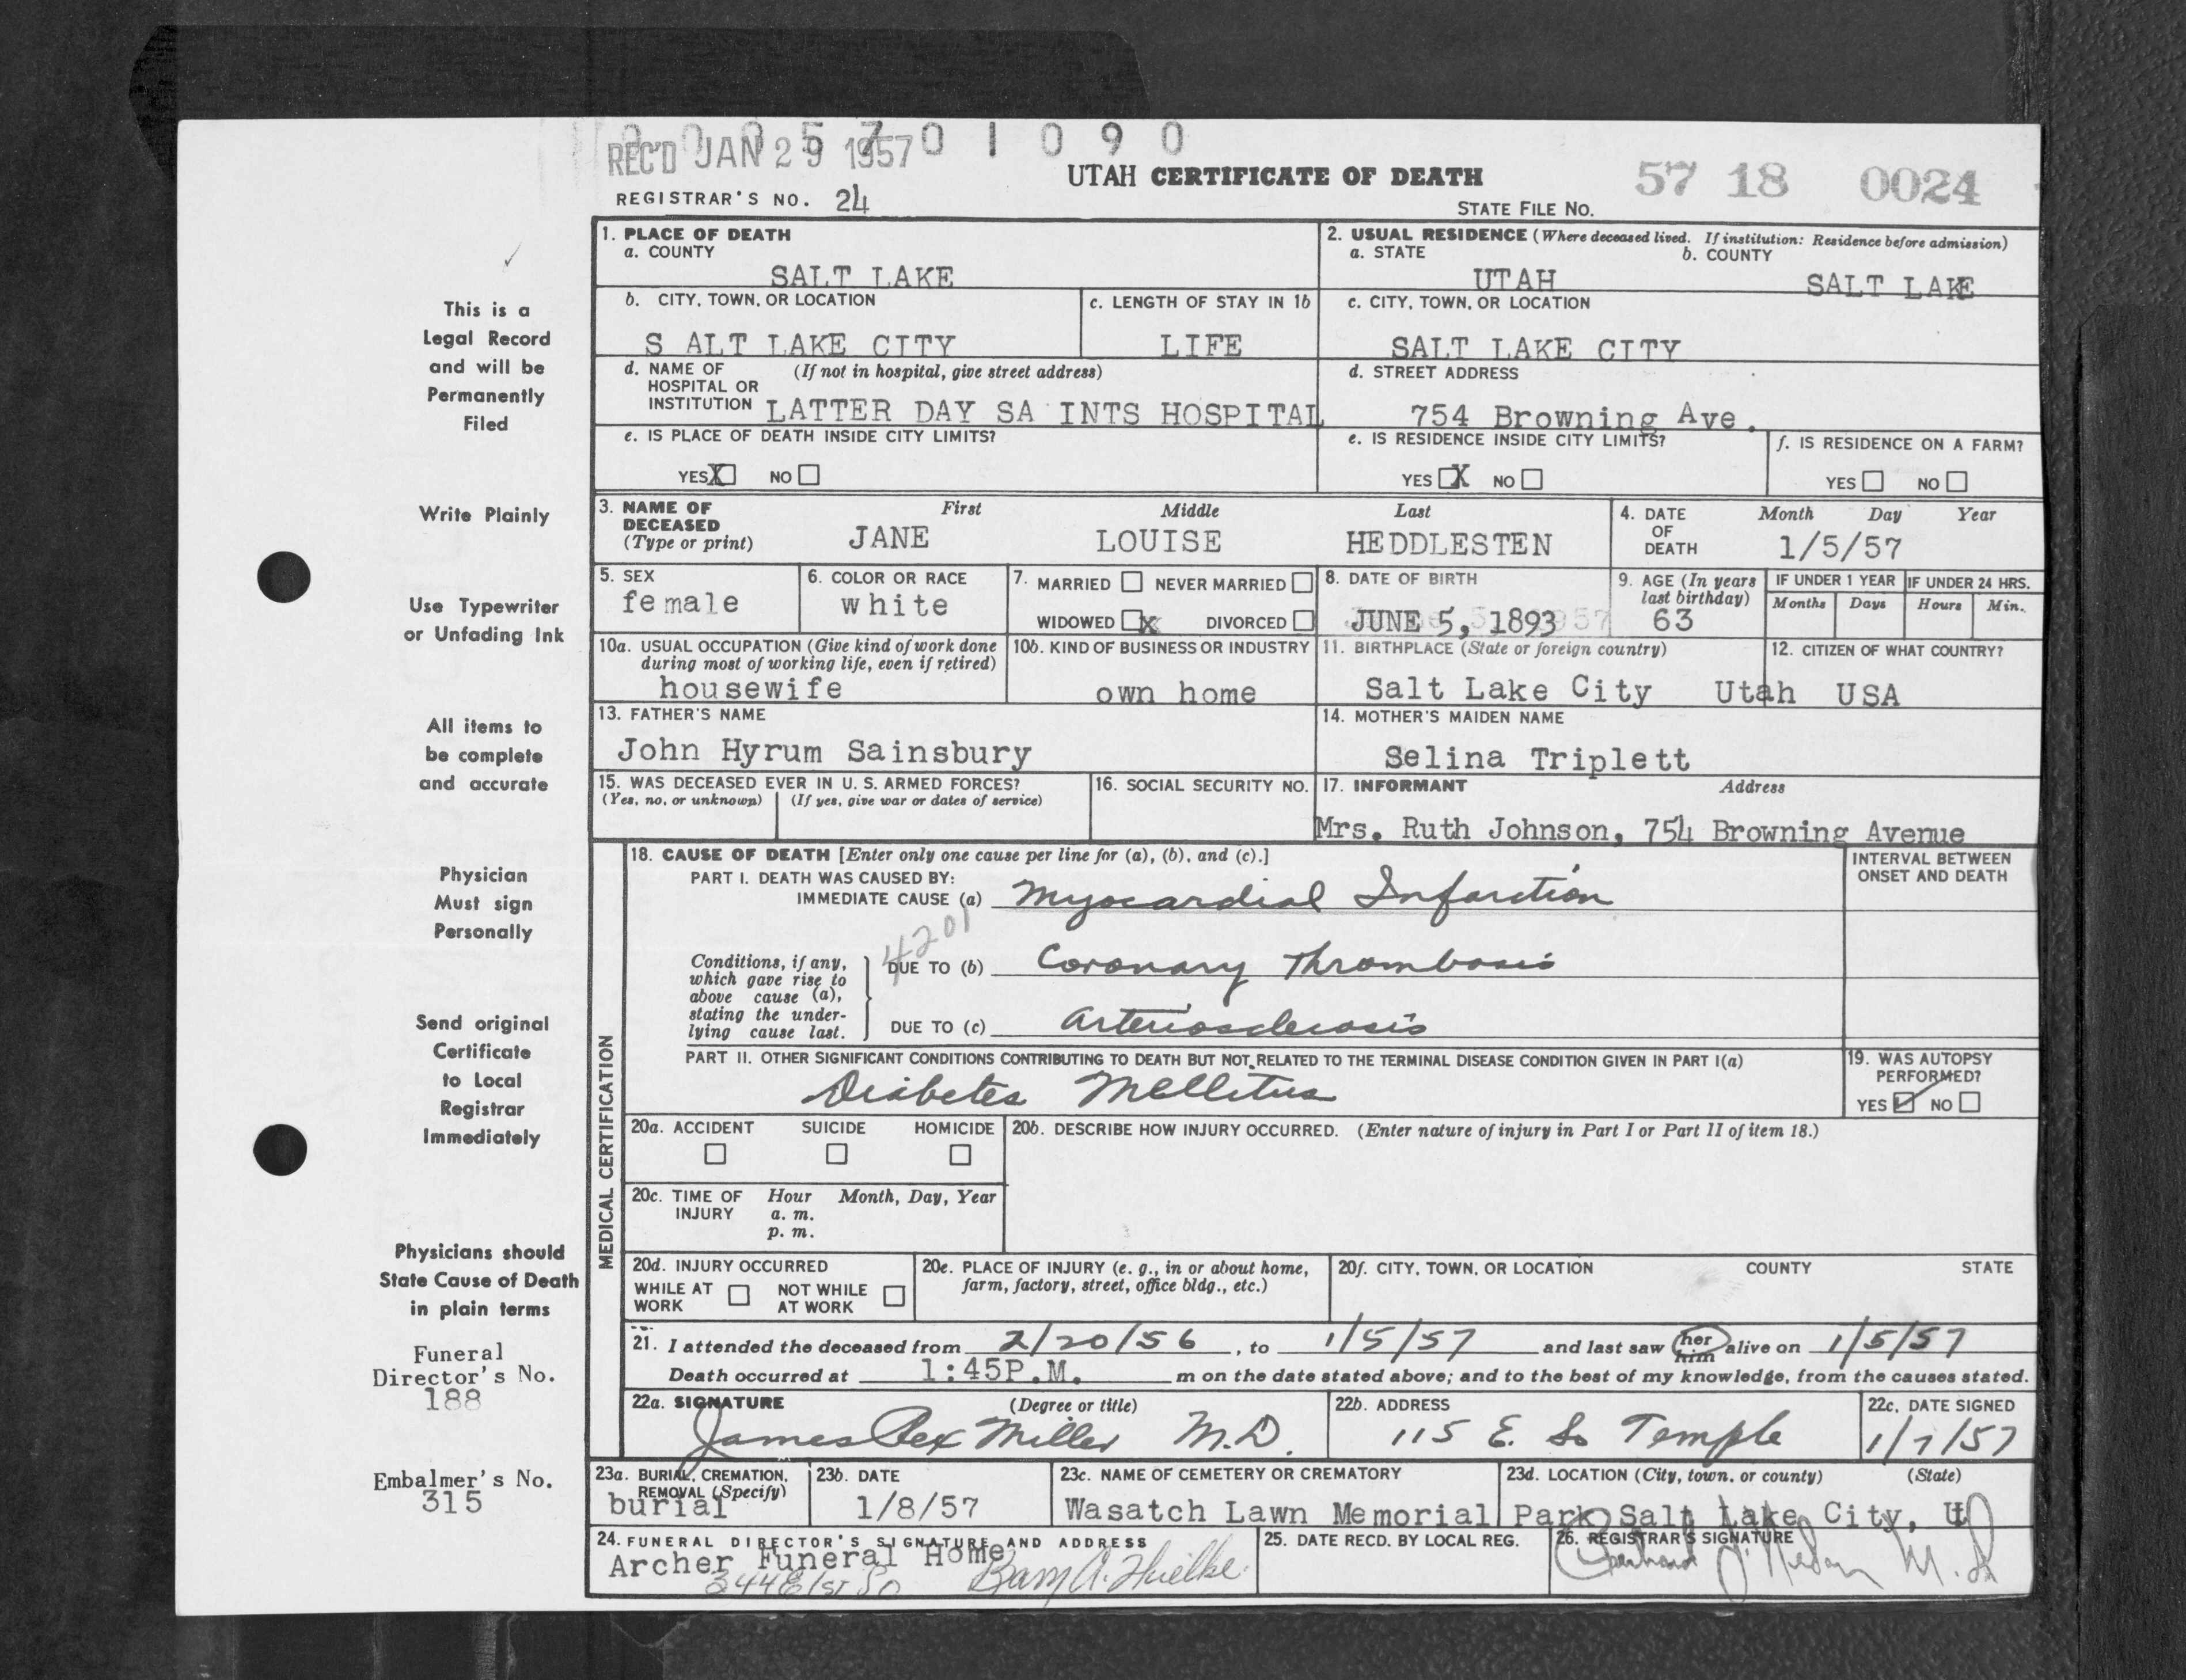 0 0 0 5 7 0 1 0 9 0
REC'D JAN 29 1957
UTAH CERTIFICATE OF DEATH
57 18 0024
REGISTRAR'S NO. 24
STATE FILE NO.
1. PLACE OF DEATH
a. COUNTY
SALT LAKE
2. USUAL RESIDENCE (Where deceased lived. If institution: Residence before admission)
a. STATE b. COUNTY
UTAH SALT LAKE
b. CITY, TOWN, OR LOCATION
S ALT LAKE CITY
c. LENGTH OF STAY IN 1b
LIFE
c. CITY, TOWN, OR LOCATION
SALT LAKE CITY
d. NAME OF (If not in hospital, give street address)
HOSPITAL OR
INSTITUTION LATTER DAY SA INTS HOSPITAL
d. STREET ADDRESS
754 Browning Ave.
e. IS PLACE OF DEATH INSIDE CITY LIMITS?
YES X NO
e. IS RESIDENCE INSIDE CITY LIMITS?
YES X NO
f. IS RESIDENCE ON A FARM?
YES NO
3. NAME OF DECEASED (Type or print)
First Middle Last
JANE LOUISE HEDDLESTEN
4. DATE OF DEATH
Month Day Year
1/5/57
5. SEX
female
6. COLOR OR RACE
white
7. MARRIED NEVER MARRIED
WIDOWED x DIVORCED
8. DATE OF BIRTH
JUNE 5, 1893
9. AGE (In years last birthday)
63
IF UNDER 1 YEAR IF UNDER 24 HRS.
Months Days Hours Min.
10a. USUAL OCCUPATION (Give kind of work done
during most of working life, even if retired)
housewife
10b. KIND OF BUSINESS OR INDUSTRY
own home
11. BIRTHPLACE (State or foreign country)
Salt Lake City Utah
12. CITIZEN OF WHAT COUNTRY?
USA
13. FATHER'S NAME
John Hyrum Sainsbury
14. MOTHER'S MAIDEN NAME
Selina Triplett
15. WAS DECEASED EVER IN U. S. ARMED FORCES?
(Yes, no, or unknown) (If yes, give war or dates of service)
16. SOCIAL SECURITY NO.
17. INFORMANT Address
Mrs. Ruth Johnson, 754 Browning Avenue
MEDICAL CERTIFICATION
18. CAUSE OF DEATH [Enter only one cause per line for (a), (b), and (c).]
INTERVAL BETWEEN
ONSET AND DEATH
PART I. DEATH WAS CAUSED BY:
IMMEDIATE CAUSE (a) Myocardial Infarction
4201
Conditions, if any,
which gave rise to
above cause (a),
stating the under-
lying cause last.
DUE TO (b) Coronary Thrombosis
DUE TO (c) Arteriosclerosis
PART II. OTHER SIGNIFICANT CONDITIONS CONTRIBUTING TO DEATH BUT NOT RELATED TO THE TERMINAL DISEASE CONDITION GIVEN IN PART I(a)
Diabetes Mellitus
19. WAS AUTOPSY
PERFORMED?
YES ✓ NO
20a. ACCIDENT SUICIDE HOMICIDE
20b. DESCRIBE HOW INJURY OCCURRED. (Enter nature of injury in Part I or Part II of item 18.)
20c. TIME OF INJURY
Hour Month, Day, Year
a. m.
p. m.
20d. INJURY OCCURRED
WHILE AT WORK NOT WHILE AT WORK
20e. PLACE OF INJURY (e. g., in or about home,
farm, factory, street, office bldg., etc.)
20f. CITY, TOWN, OR LOCATION COUNTY STATE
21. I attended the deceased from 2/20/56, to 1/5/57 and last saw her him alive on 1/5/57
Death occurred at 1:45P.M. m on the date stated above; and to the best of my knowledge, from the causes stated.
22a. SIGNATURE (Degree or title)
James Rex Miller M.D.
22b. ADDRESS
115 E. So Temple
22c. DATE SIGNED
1/7/57
23a. BURIAL, CREMATION,
REMOVAL (Specify)
burial
23b. DATE
1/8/57
23c. NAME OF CEMETERY OR CREMATORY
23d. LOCATION (City, town, or county) (State)
Wasatch Lawn Memorial Park Salt Lake City, U
24. FUNERAL DIRECTOR'S SIGNATURE AND ADDRESS
Archer Funeral Home
344 E 1st So
25. DATE RECD. BY LOCAL REG.
26. REGISTRAR'S SIGNATURE
M.D.
This is a
Legal Record
and will be
Permanently
Filed
Write Plainly
Use Typewriter
or Unfading Ink
All items to
be complete
and accurate
Physician
Must sign
Personally
Send original
Certificate
to Local
Registrar
Immediately
Physicians should
State Cause of Death
in plain terms
Funeral
Director's No.
188
Embalmer's No.
315